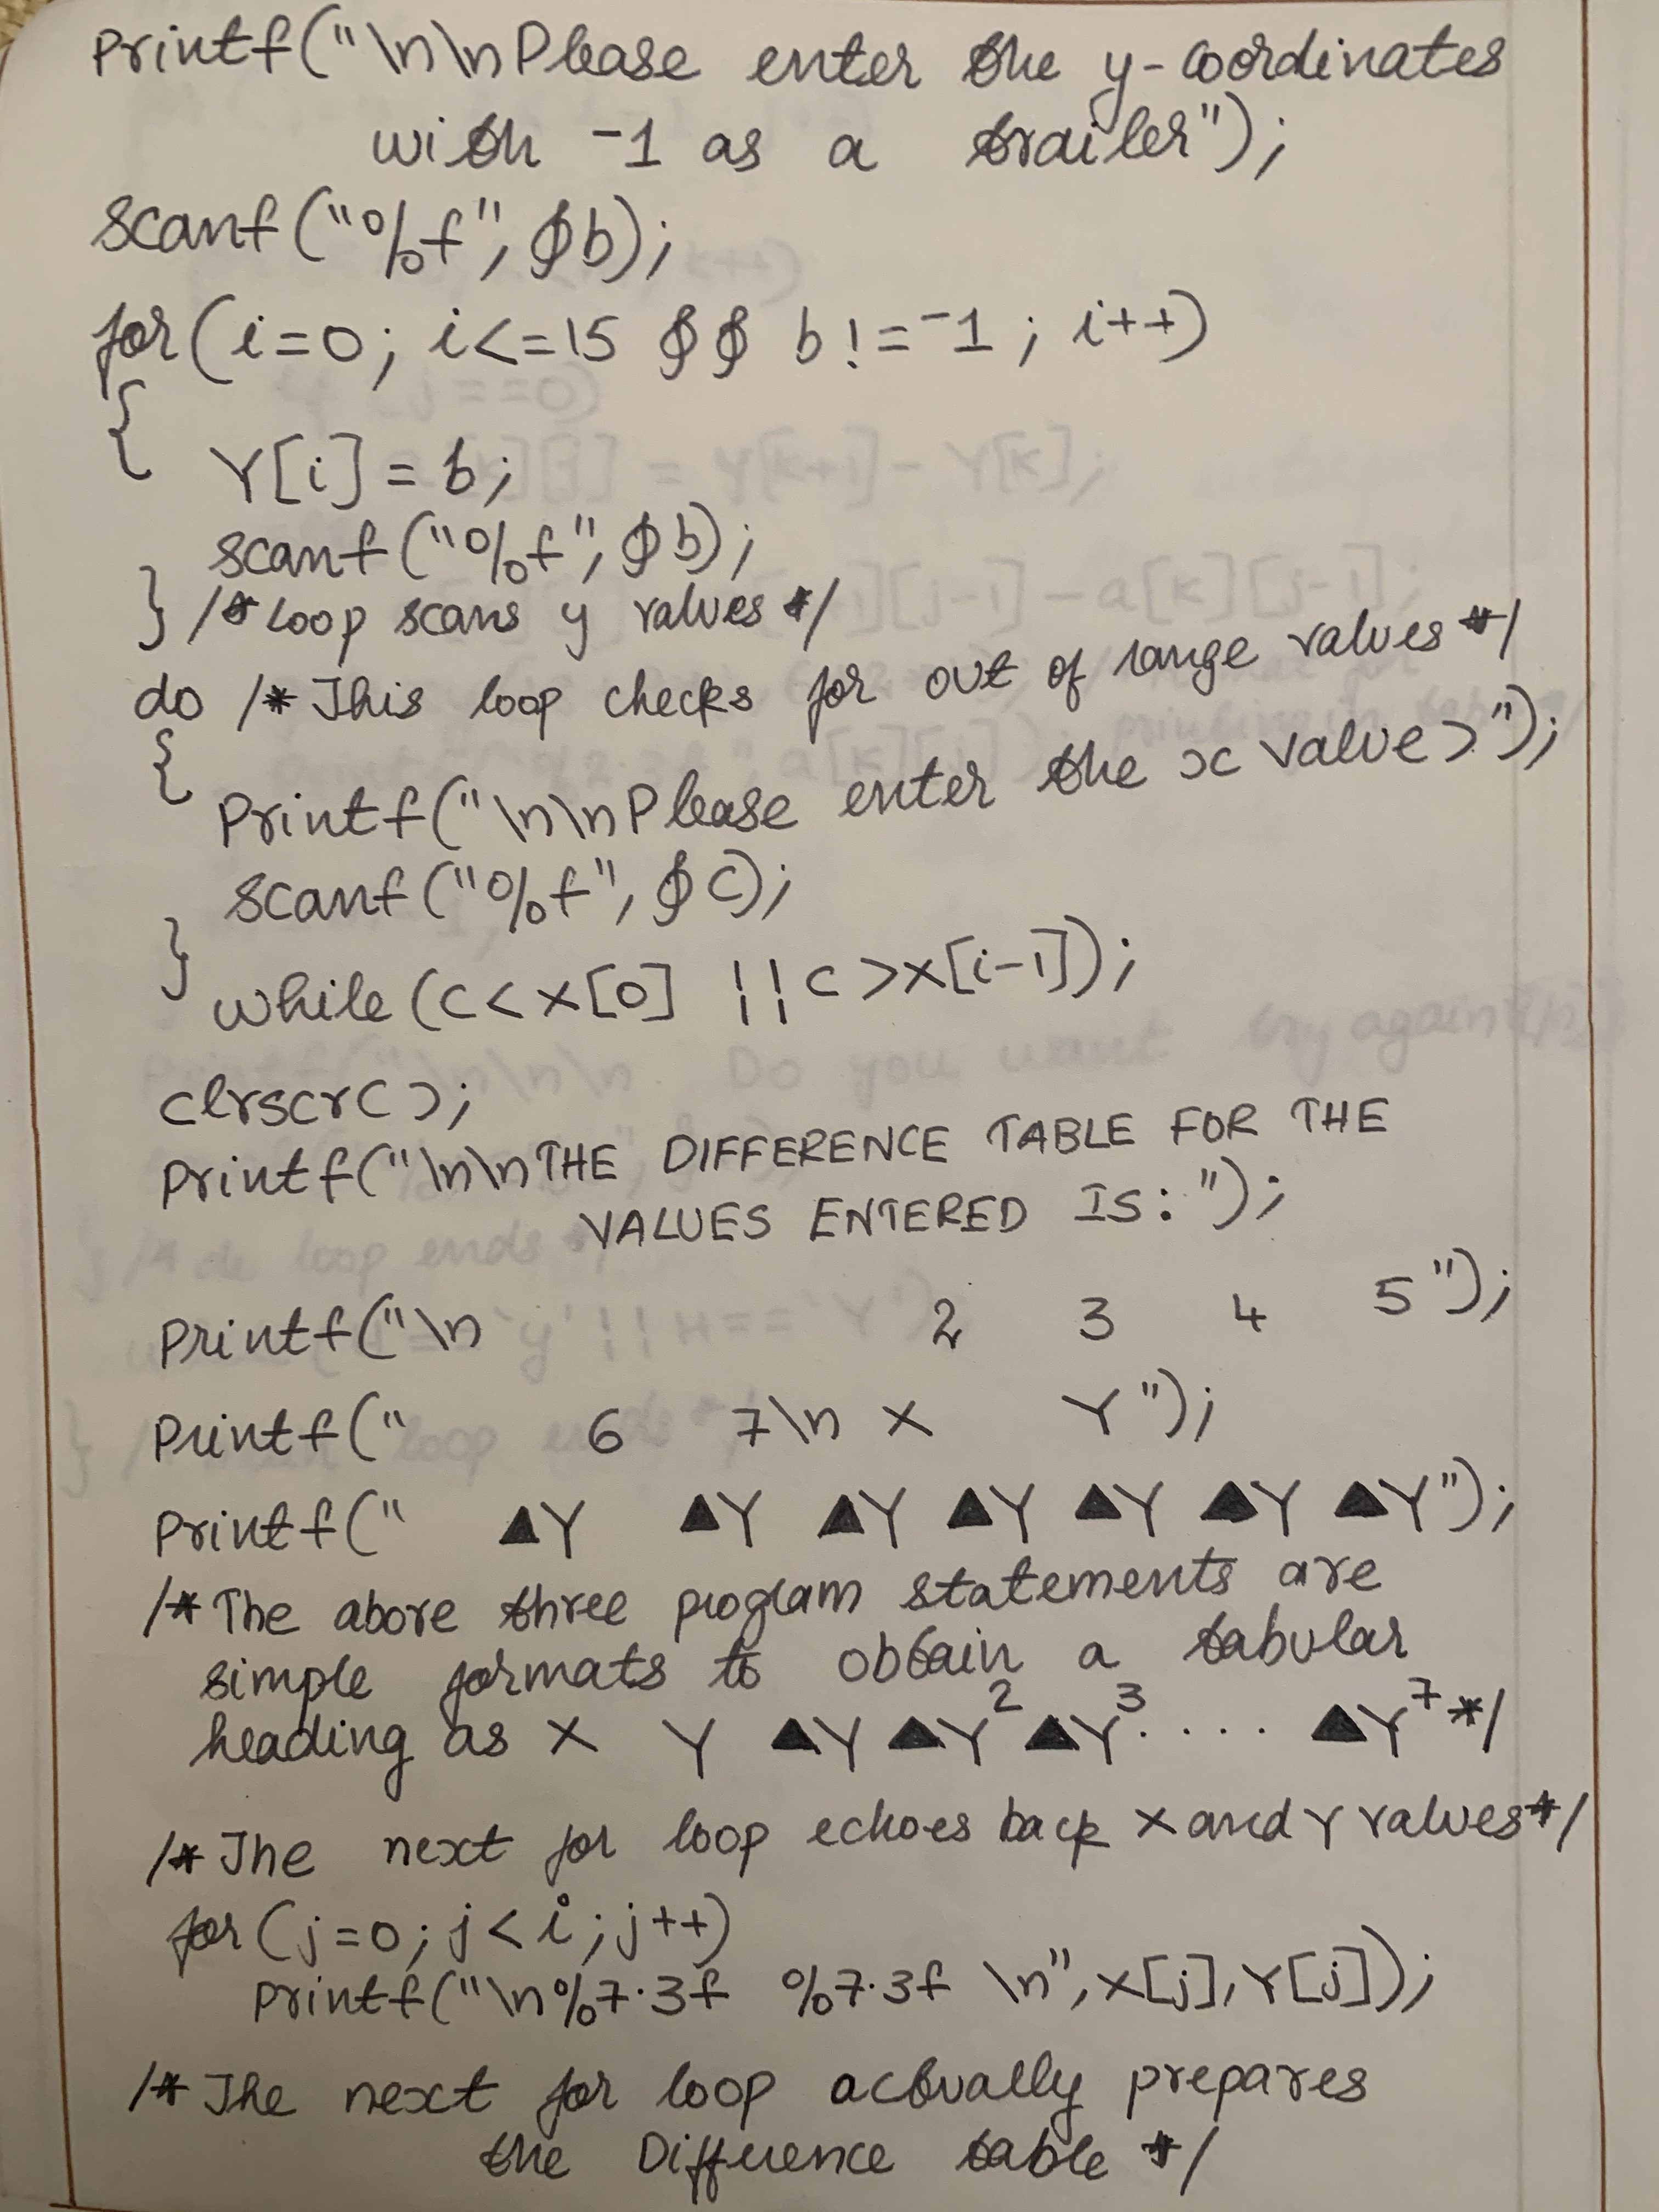 printf("\n\nPlease enter the y-coordinates
with -1 as a trailer");
scanf("%f", &b);
for(i=0; i<=15 && b!=-1; i++)
{
Y[i] = b;
scanf("%f", &b);
} /* Loop scans y values */
do /* This loop checks for out of range values */
{
printf("\n\nPlease enter the x value>");
scanf("%f", &c);
}
while (c<x[0] || c>x[i-1]);
clrscr();
printf("\n\nTHE DIFFERENCE TABLE FOR THE
VALUES ENTERED IS: ");
printf("\n 2 3 4 5");
printf(" 6 7\n x Y");
printf(" ▲Y ▲Y ▲Y ▲Y ▲Y ▲Y ▲Y");
/* The above three program statements are
simple formats to obtain a tabular
heading as x Y ▲Y ▲Y² ▲Y³ .... ▲Y⁷ */
/* The next for loop echoes back x and Y values */
for(j=0; j<i; j++)
printf("\n%7.3f %7.3f \n", x[j], Y[j]);
/* The next for loop actually prepares
the Difference table */